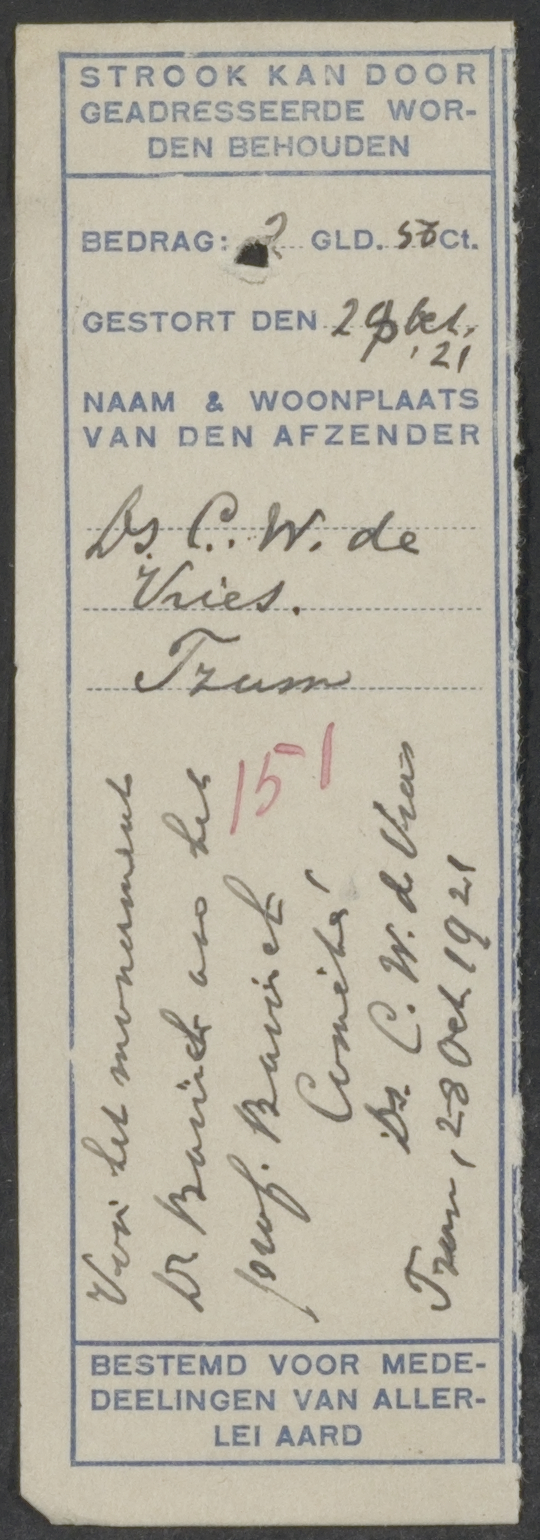 STROOK KAN DOOR
GEADRESSEERDE WOR-
DEN BEHOUDEN
BEDRAG: 2 GLD. 50 Ct.
GESTORT DEN 28 Oct.
'21
NAAM & WOONPLAATS
VAN DEN AFZENDER
Ds. C. W. de
Vries.
Tzum
151
Voor het monument
Dr Bavinck aan het
prof. Bavinck
Comité
Ds. C. W. de Vries
Tzum, 28 Oct 1921
BESTEMD VOOR MEDE-
DEELINGEN VAN ALLER-
LEI AARD